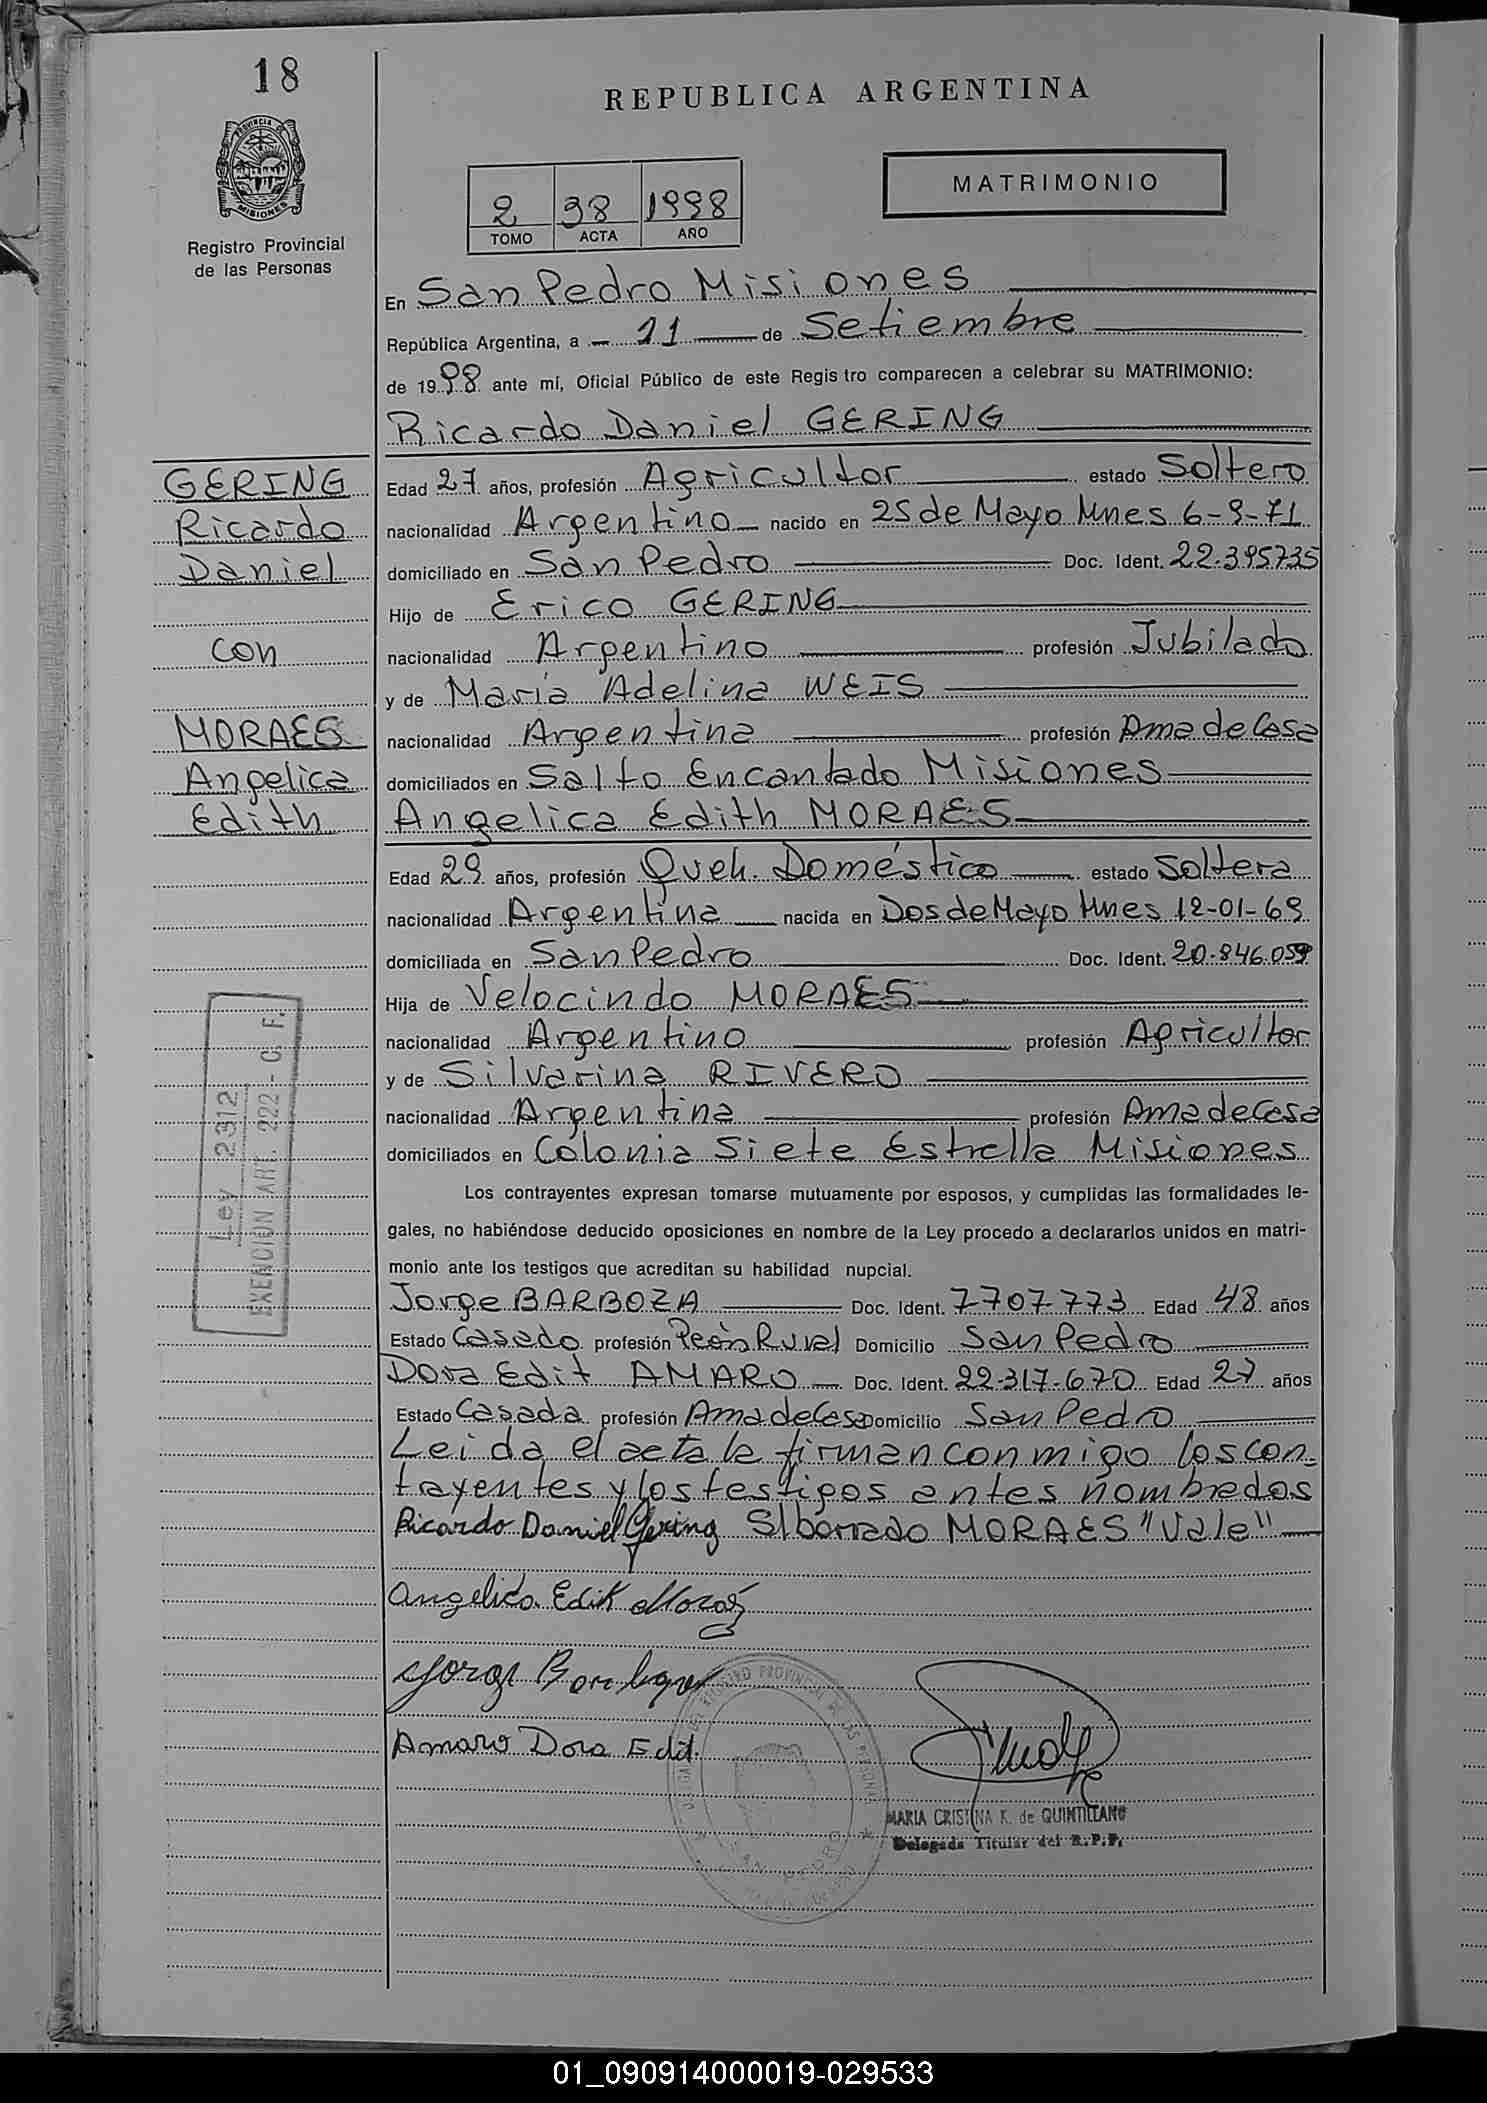 18
REPUBLICA ARGENTINA
PROVINCIA DE
MISIONES
Registro Provincial
de las Personas
MATRIMONIO
2 98 1998
TOMO ACTA AÑO
En San Pedro Misiones
República Argentina, a 11 de Setiembre
de 1998 ante mí, Oficial Público de este Registro comparecen a celebrar su MATRIMONIO:
Ricardo Daniel GERING
GERING
Ricardo
Daniel
con
MORAES
Angelica
Edith
Edad 27 años, profesión Agricultor estado Soltero
nacionalidad Argentino nacido en 25 de Mayo Mnes 6-9-71
domiciliado en San Pedro Doc. Ident. 22.395735
Hijo de Erico GERING
nacionalidad Argentino profesión Jubilado
y de María Adelina WEIS
nacionalidad Argentina profesión Ama de Casa
domiciliados en Salto Encantado Misiones
Angelica Edith MORAES
Edad 29 años, profesión Queh. Doméstico estado Soltera
nacionalidad Argentina nacida en Dos de Mayo Mnes 12-01-69
domiciliada en San Pedro Doc. Ident. 20.846.059
Hija de Velocindo MORAES
nacionalidad Argentino profesión Agricultor
y de Silvarina RIVERO
nacionalidad Argentina profesión Ama de Casa
domiciliados en Colonia Siete Estrella Misiones
Ley 2312
EXENCION ART. 222 - C. F.
Los contrayentes expresan tomarse mutuamente por esposos, y cumplidas las formalidades le-
gales, no habiéndose deducido oposiciones en nombre de la Ley procedo a declararlos unidos en matri-
monio ante los testigos que acreditan su habilidad nupcial.
Jorge BARBOZA Doc. Ident. 7707773 Edad 48 años
Estado Casado profesión Peón Rural Domicilio San Pedro
Dora Edit AMARO Doc. Ident. 22.317.670 Edad 27 años
Estado Casada profesión Ama de Casa Domicilio San Pedro
Leida el acta la firman conmigo los con-
trayentes y los testigos antes nombrados
Ricardo Daniel Gering S/borrado MORAES "Vale"
Angelica Edit Moraes
Jorge
Amaro Dora Edit.
REGISTRO PROVINCIAL DE LAS PERSONAS
SAN PEDRO
MARIA CRISTINA K. de QUINTILLANO
Delegada Titular del R.P.P.
01_090914000019-029533